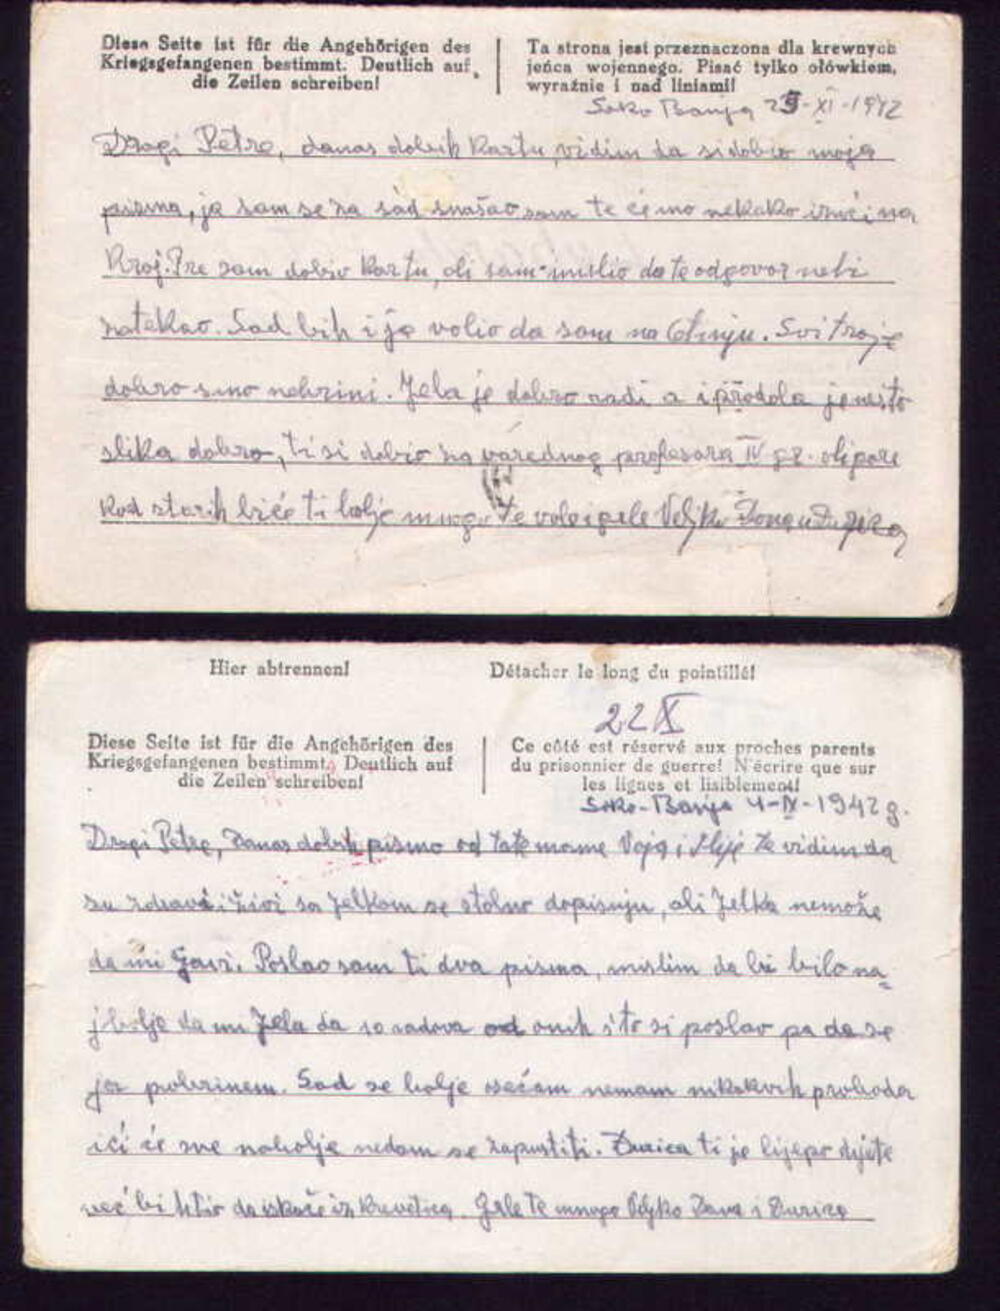 Diese Seite ist für die Angehörigen des
Kriegsgefangenen bestimmt. Deutlich auf
die Zeilen schreiben!
Ta strona jest przeznaczona dla krewnych
jeńca wojennego. Pisać tylko ołówkiem,
wyraźnie i nad liniami!
Soko Banja 23-XI-1942
Dragi Petre, danas dobih kartu, vidim da si dobio moja
pisma, ja sam se za sad snašao sam te ćemo nekako izući na
Kraj. Pre sam dobio kartu, ali sam mislio da te odgovor nebi
zatekao. Sad bih i ja volio da sam na Cetinju. Svi troje
dobro smo nebrini. Jela je dobro radi a i prodala je nešto
slika dobro, ti si dobio za vanrednog profesora IV gr. ali pare
kod starih biće ti bolje mnogo te vole i grle Veljko
Hier abtrennen!
Détacher le long du pointillé!
22 X
Diese Seite ist für die Angehörigen des
Kriegsgefangenen bestimmt. Deutlich auf
die Zeilen schreiben!
Ce côté est réservé aux proches parents
du prisonnier de guerre! N'écrire que sur
les lignes et lisiblement!
Soko-Banja 4-IX-1942 g.
Dragi Petre, danas dobih pismo od tate mame Voja i Ilije te vidim da
su zdravi i živi sa Jelkom se stalno dopisuju, ali Jelka nemože
da mi javi. Poslao sam ti dva pisma, mislim da bi bilo na-
jbolje da mi Jela da 10 radova od onih što si poslao pa da se
ja pobrinem. Sad se bolje osećam nemam nikakvih prohoda
ići će sve nabolje nedam se zapustiti. Đurica ti je lijepo dijete
već bi htio da iskače iz krevetića. Grle te mnogo Veljko Zava i Đurica